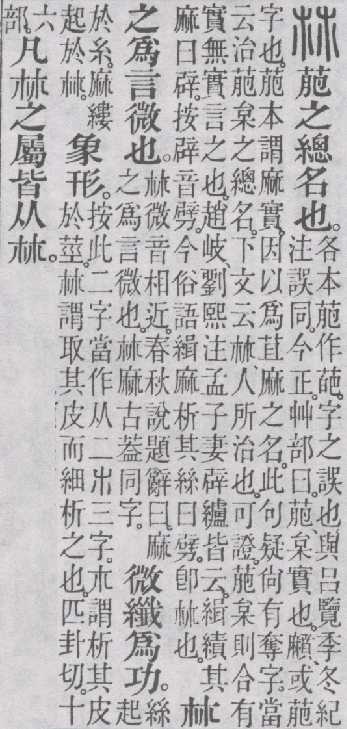 𣏟萉之總名也。各本萉作葩。字之誤也。與呂覽季冬紀注誤同。今正。艸部曰。萉、枲實也。黂、或萉
字也。萉本謂麻實。因以爲苴麻之名。此句疑尙有奪字。當云治萉枲之總名。下文云𣏟、人所治也。可證。萉枲則合有
實無實言之也。趙岐、劉熙注孟子妻辟纑皆云緝績其麻曰辟。按辟音劈。今俗語緝麻析其絲曰劈。卽𣏟也。𣏟
之爲言微也。𣏟微音相近。春秋說題辭曰。麻之爲言微也。𣏟麻古葢同字。微纖爲功。絲起
於糸。麻縷起於𣏟。象形。按此二字當作从二𣎳三字。𣎳謂析其皮於莖。𣏟謂取其皮而細析之也。匹卦切。十
六部。凡𣏟之屬皆从𣏟。